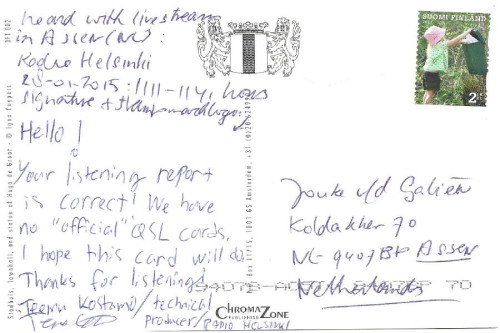 heard with livestream
in Assen (NL):
Radio Helsinki
28-01-2015: 1111-1141 hours
signature +
Hello!
Your listening report
is correct! We have
no "official" QSL cards,
I hope this card will do.
Thanks for listening!
Teemu Kostamo/technical
producer/RADIO HELSINKI
DFT 002
Stadhuis, townhall, and statue of Hugo de Groot - © Igno Cuypers
Box 11715, 1001 GS Amsterdam,
CHROMAZONE
PUBLISHING
SUOMI FINLAND
Jouke v/d Galiën
Koldakker 70
NL-9407BP Assen
Netherlands